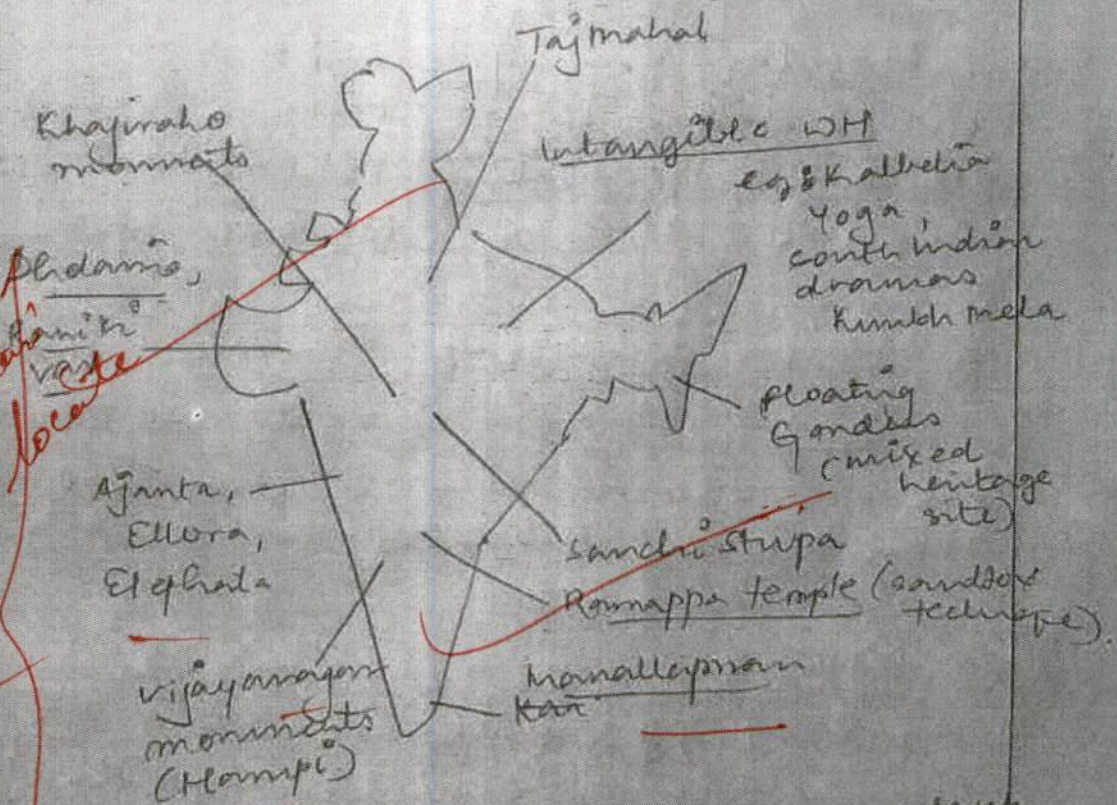 Taj mahal
Khajiraho
monments
Intangible WH
eg: Kalbelia
Yoga,
south indian
dramas
Kumbh mela
Rani ki
vav
locate
floating
Gardens
(mixed
heritage
site)
Ajanta,
Ellora,
Elephata
Sanchi Stupa
Ramappa temple (sandbox
technique).
Vijayanagar
monuments
(Hampi)
mamallapuram
Kan